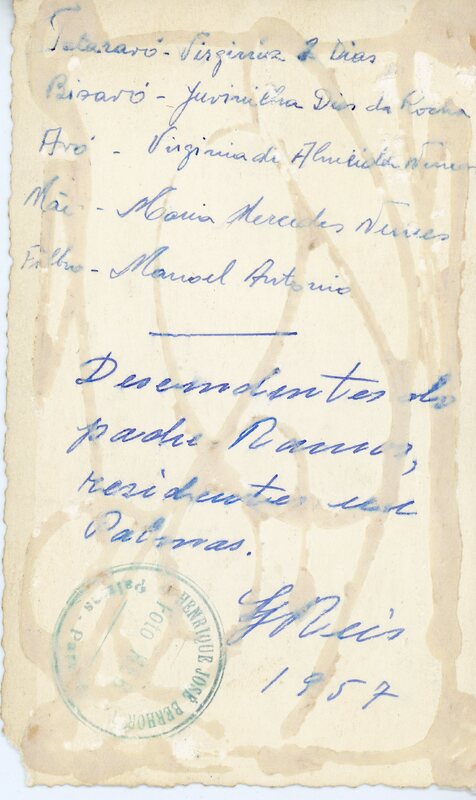 Tataravó - Virginia Dias
Bisavó - Juvinilha Dias da Rocha
Avó - Virginia de Almeida Nunes
Mãe - Maria Mercedes Nunes
Filho - Manoel Antonio
Descendentes do
padre Ramos,
residentes em
Palmas.
Reis
1957
HENRIQUE JOSÉ
FOTO
Palmas